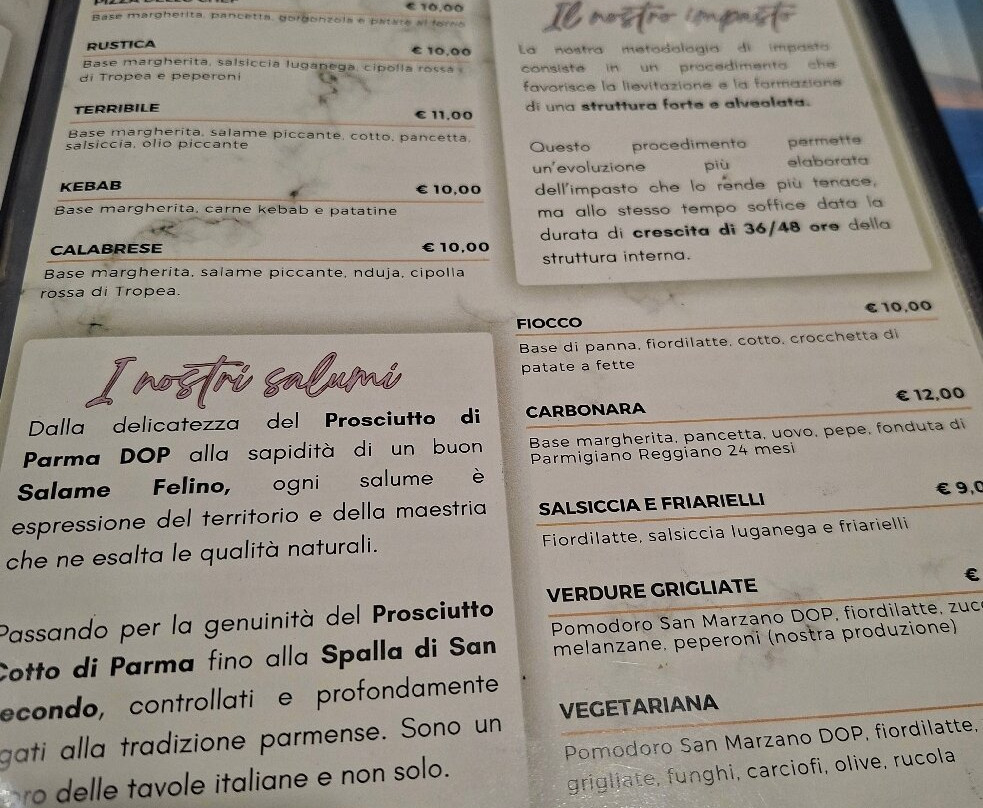 € 10,00
Base margherita, pancetta, gorgonzola e patate al forno
RUSTICA
€ 10,00
Base margherita, salsiccia luganega, cipolla rossa
di Tropea e peperoni
TERRIBILE
€ 11,00
Base margherita, salame piccante, cotto, pancetta,
salsiccia, olio piccante
KEBAB
€ 10,00
Base margherita, carne kebab e patatine
CALABRESE
€ 10,00
Base margherita, salame piccante, nduja, cipolla
rossa di Tropea.
I nostri salumi
Dalla delicatezza del Prosciutto di
Parma DOP alla sapidità di un buon
Salame Felino, ogni salume è
espressione del territorio e della maestria
che ne esalta le qualità naturali.
Passando per la genuinità del Prosciutto
Cotto di Parma fino alla Spalla di San
econdo, controllati e profondamente
gati alla tradizione parmense. Sono un
ro delle tavole italiane e non solo.
Il nostro impasto
La nostra metodologia di impasto
consiste in un procedimento che
favorisce la lievitazione e la formazione
di una struttura forte e alveolata.
Questo procedimento permette
un'evoluzione più elaborata
dell'impasto che lo rende più tenace,
ma allo stesso tempo soffice data la
durata di crescita di 36/48 ore della
struttura interna.
FIOCCO
€ 10,00
Base di panna, fiordilatte, cotto, crocchetta di
patate a fette
CARBONARA
€ 12,00
Base margherita, pancetta, uovo, pepe, fonduta di
Parmigiano Reggiano 24 mesi
SALSICCIA E FRIARIELLI
€ 9,0
Fiordilatte, salsiccia luganega e friarielli
VERDURE GRIGLIATE
€
Pomodoro San Marzano DOP, fiordilatte, zucc
melanzane, peperoni (nostra produzione)
VEGETARIANA
Pomodoro San Marzano DOP, fiordilatte,
grigliate, funghi, carciofi, olive, rucola